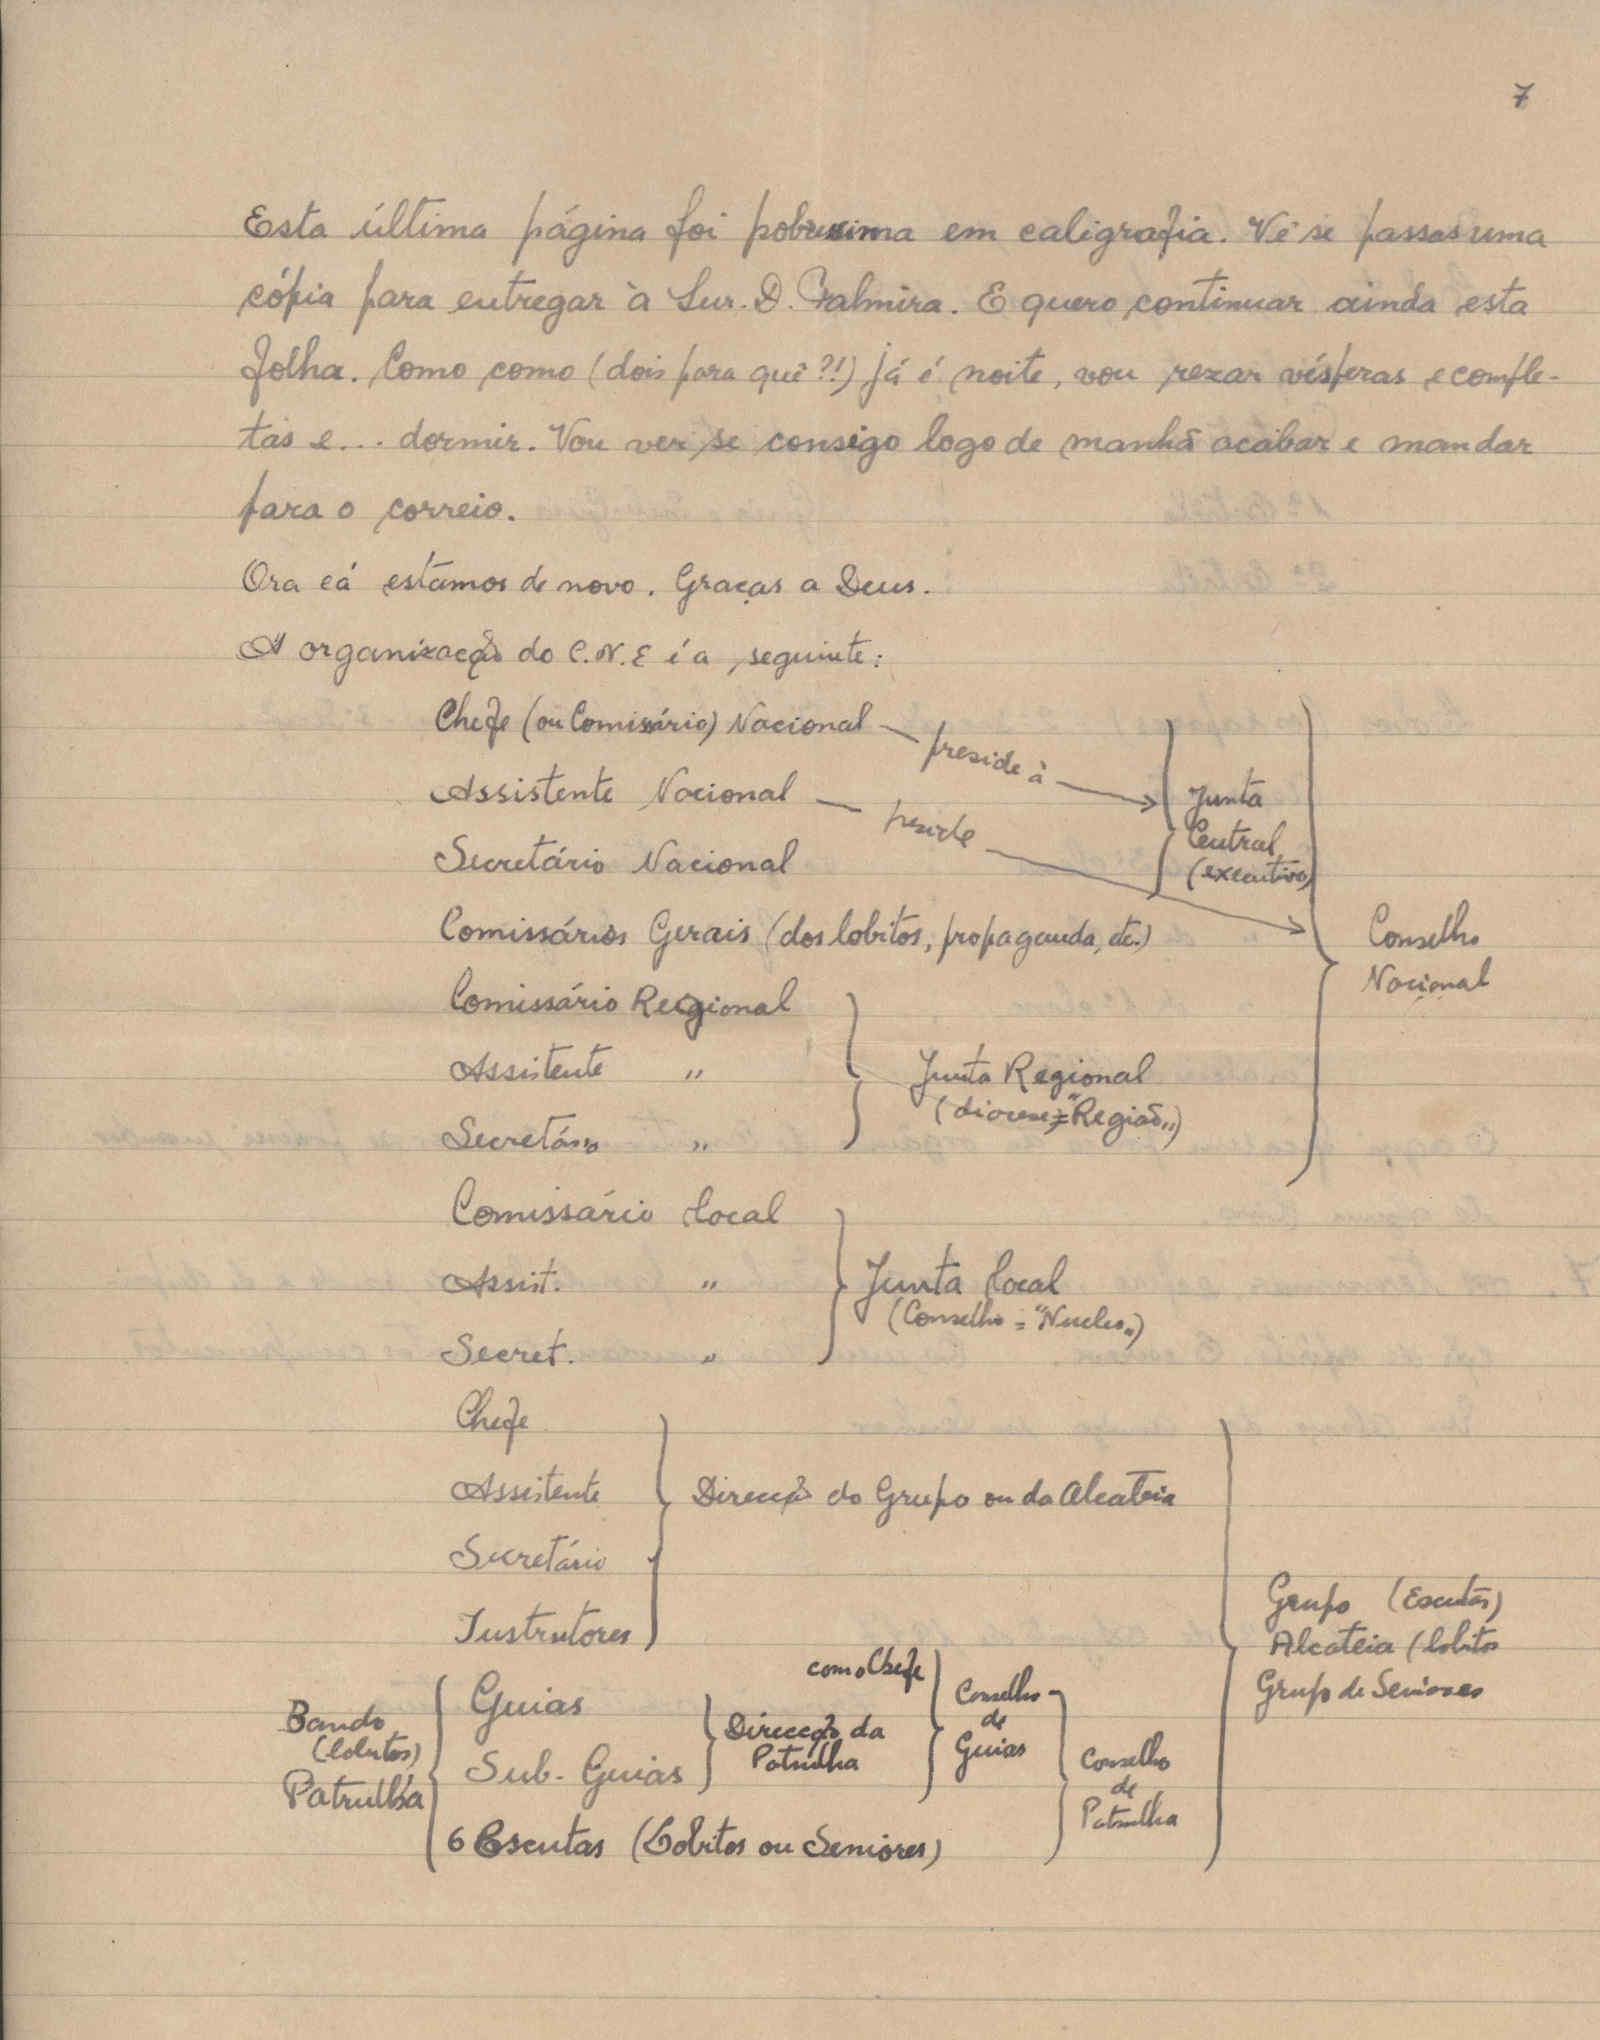 7
Esta última página foi pobrissima em caligrafia. Vê se passas uma
cópia para entregar à Snr. D. Palmira. E quero continuar ainda esta
folha. Como como (dois para quê?!) já é noite, vou rezar vésperas e comple-
tas e... dormir. Vou ver se consigo logo de manhã acabar e mandar
para o correio.
Ora cá estamos de novo. Graças a Deus.
A organização do C.N.E é a seguinte:
Chefe (ou Comissário) Nacional — preside à
Assistente Nacional — preside
Junta
Central
(executiva)
Secretário Nacional
Comissários Gerais (dos lobitos, propaganda, etc.)
Conselho
Nacional
Comissário Regional
Assistente "
Junta Regional
(diocese = "Região")
Secretário "
Comissário local
Assist. "
Junta local
(Conselho = "Nucleo")
Secret. "
Chefe
Assistente
Direcção do Grupo ou da Alcateia
Secretário
Instrutores
Grupo (Escutas)
Alcateia (lobitos
Grupo de Seniores
como Chefe
Guias
Conselho
de
Guias
Bando
(lobitos)
Patrulha
Direcção da
Patrulha
Sub-Guias
Conselho
de
Patrulha
6 Escutas (Lobitos ou Seniores)